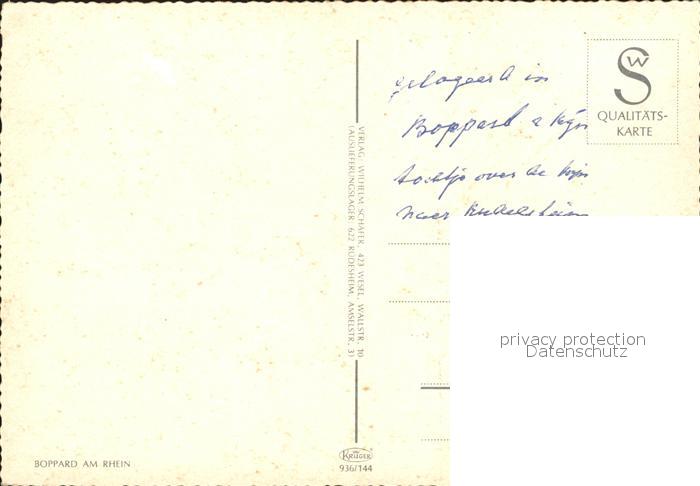 gelogeerd in
Boppard a Rijn
tochtje over de Rijn
naar Rudesheim
SW
QUALITÄTS-
KARTE
VERLAG: WILHELM SCHÄFER, 423 WESEL, WALLSTR. 10
(AUSLIEFERUNGSLAGER: 622 RÜDESHEIM, AMSELSTR. 3)
privacy protection
Datenschutz
BOPPARD AM RHEIN
KRÜGER
936/144